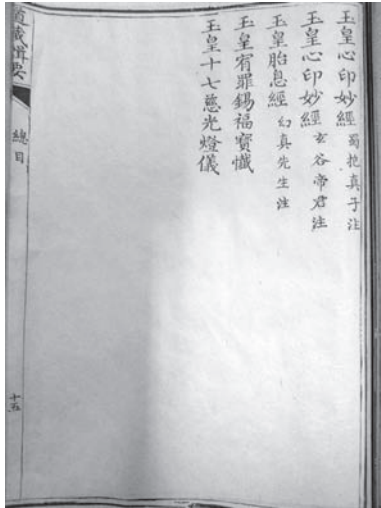 玉皇心印妙經 蜀抱真子注
玉皇心印妙經 玄谷帝君注
玉皇胎息經 幻真先生注
玉皇宥罪錫福寶懺
玉皇十七慈光燈儀
道藏輯要
總目
十五